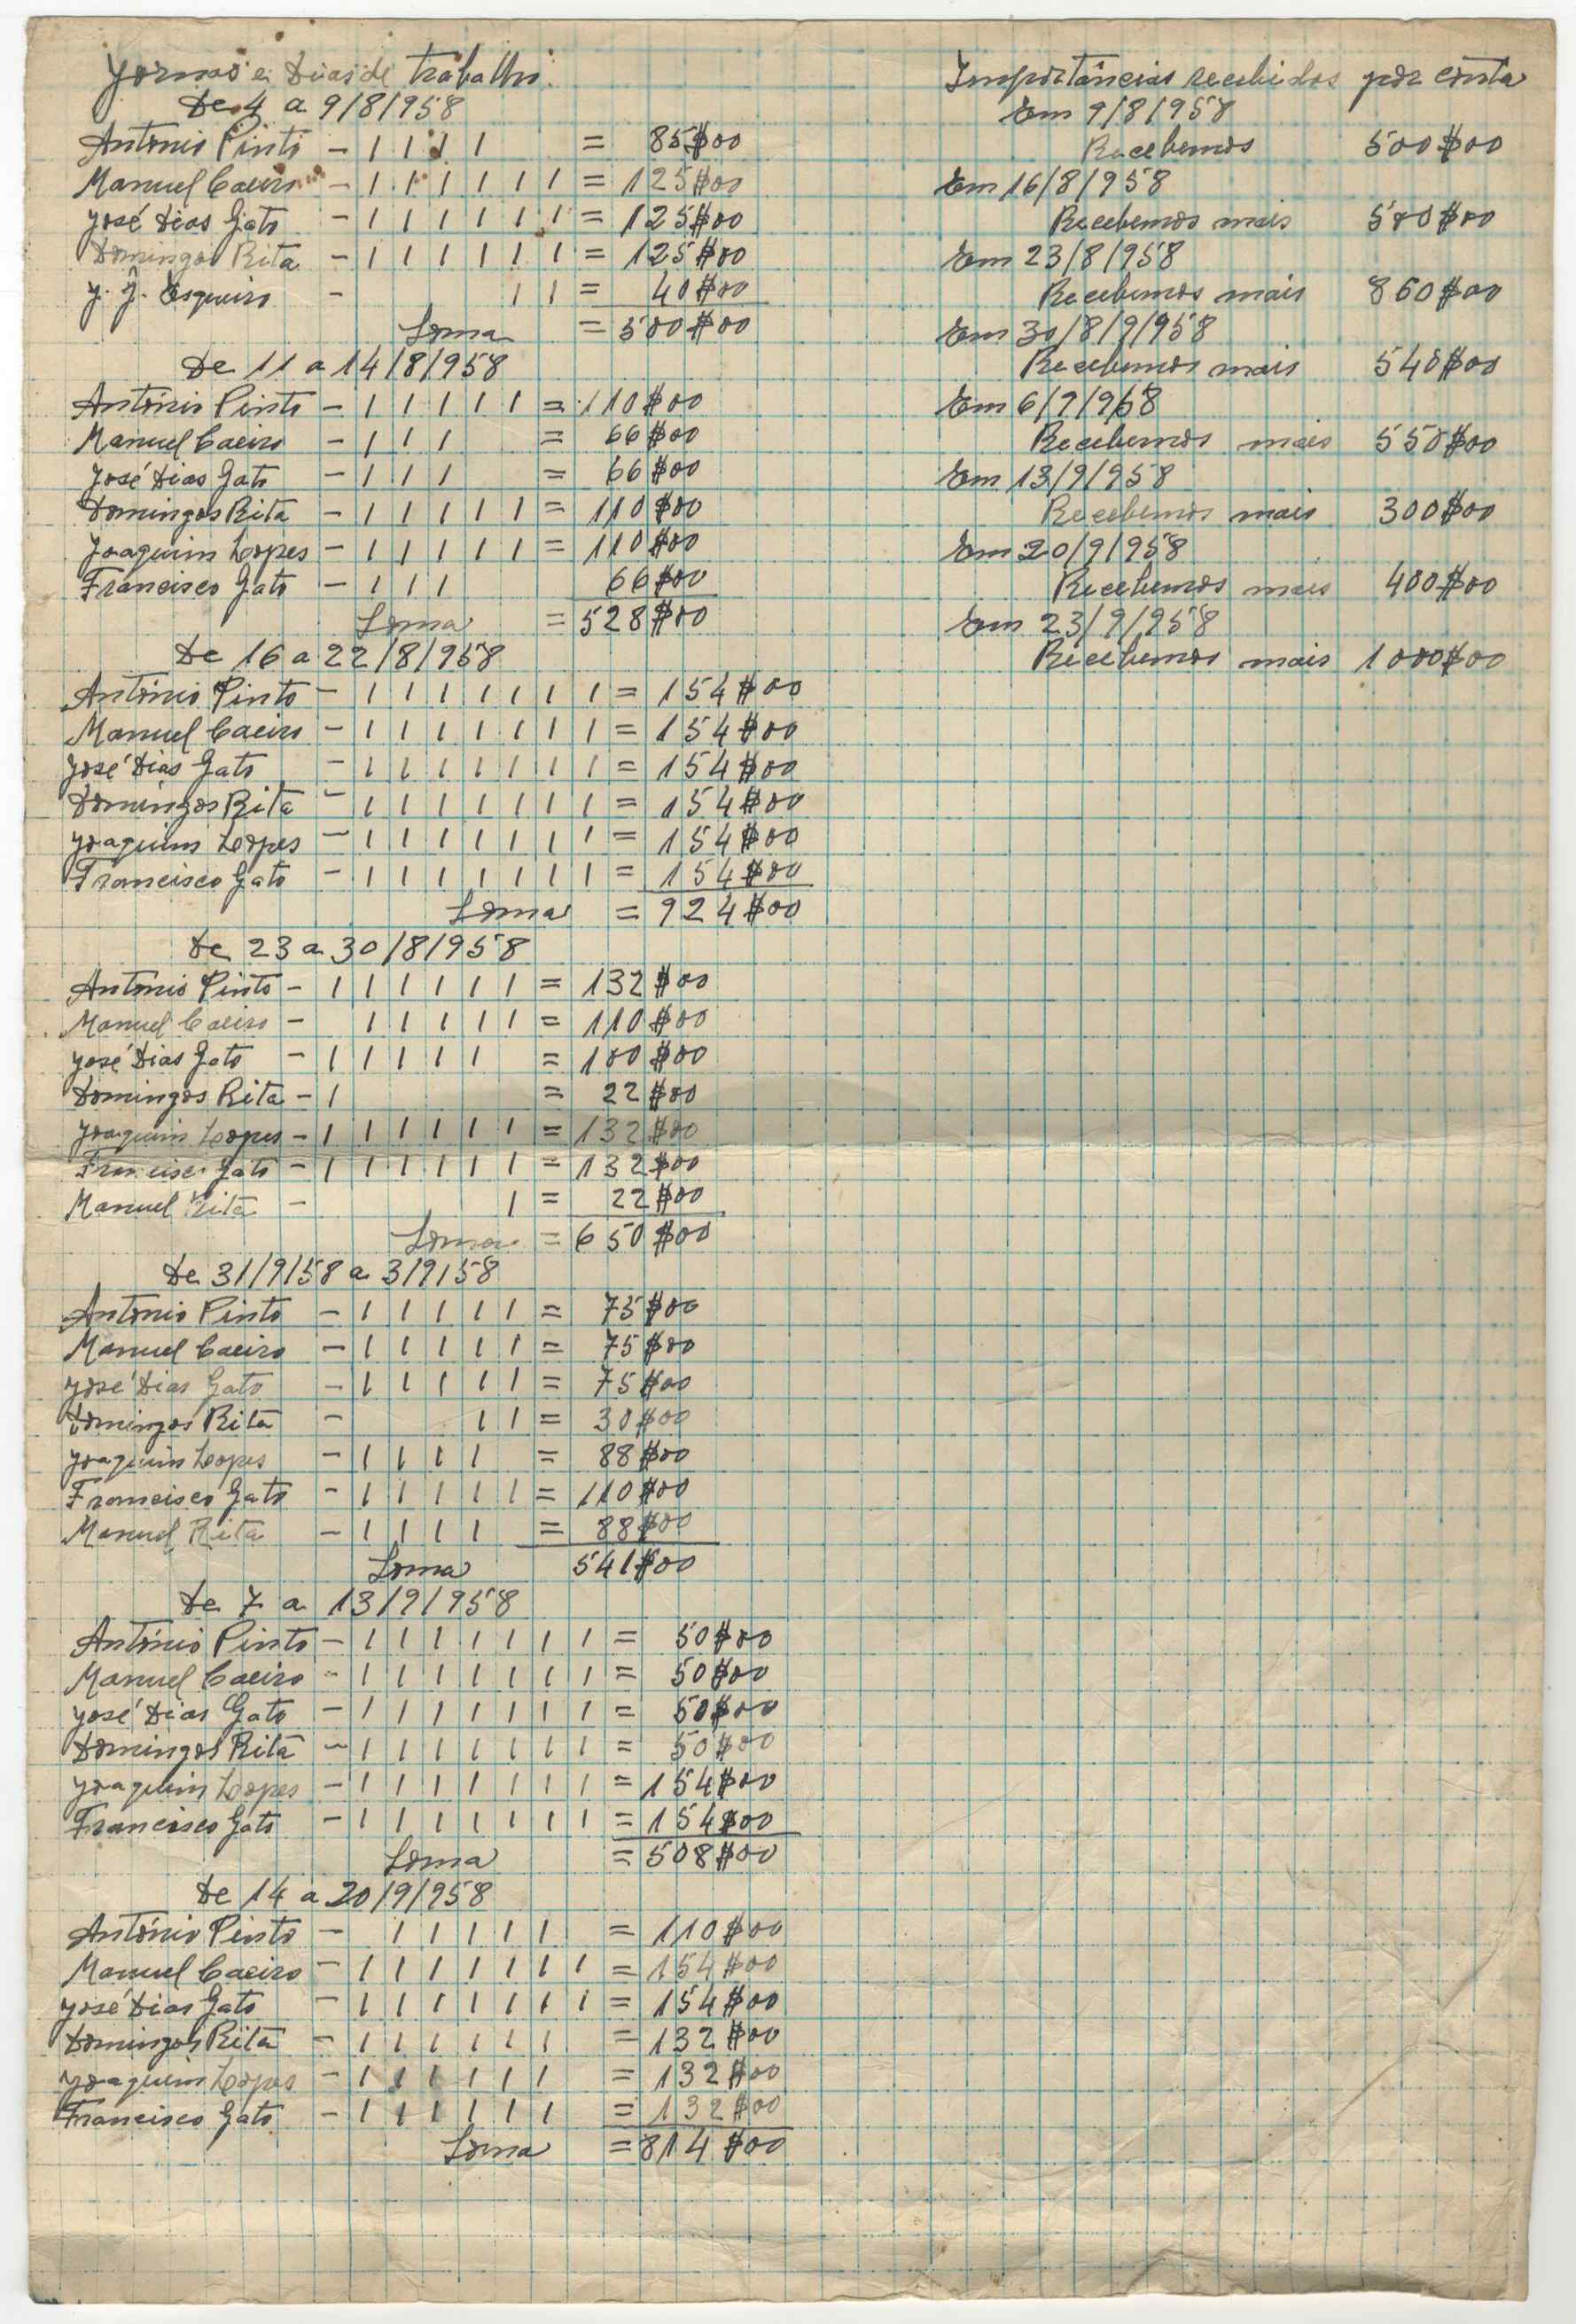 Jornas e Dias de trabalho
De 4 a 9/8/958
António Pinto - 1 1 1 1 = 85$00
Manuel Caeiro - 1 1 1 1 1 1 = 125$00
José Dias Gato - 1 1 1 1 1 1 = 125$00
Domingos Rita - 1 1 1 1 1 1 = 125$00
J. J. Esqueiro - 1 1 = 40$00
Soma = 500$00
De 11 a 14/8/958
António Pinto - 1 1 1 1 1 = 110$00
Manuel Caeiro - 1 1 1 = 66$00
José Dias Gato - 1 1 1 = 66$00
Domingos Rita - 1 1 1 1 1 = 110$00
Joaquim Lopes - 1 1 1 1 1 = 110$00
Francisco Gato - 1 1 1 66$00
Soma = 528$00
De 16 a 22/8/958
António Pinto - 1 1 1 1 1 1 1 = 154$00
Manuel Caeiro - 1 1 1 1 1 1 1 = 154$00
José Dias Gato - 1 1 1 1 1 1 1 = 154$00
Domingos Rita - 1 1 1 1 1 1 1 = 154$00
Joaquim Lopes - 1 1 1 1 1 1 1 = 154$00
Francisco Gato - 1 1 1 1 1 1 1 = 154$00
Soma = 924$00
De 23 a 30/8/958
António Pinto - 1 1 1 1 1 1 = 132$00
Manuel Caeiro - 1 1 1 1 1 = 110$00
José Dias Gato - 1 1 1 1 1 = 100$00
Domingos Rita - 1 = 22$00
Joaquim Lopes - 1 1 1 1 1 1 = 132$00
Francisco Gato - 1 1 1 1 1 1 = 132$00
Manuel Rita - 1 = 22$00
Soma = 650$00
De 31/9/58 a 3/9/58
António Pinto - 1 1 1 1 1 = 75$00
Manuel Caeiro - 1 1 1 1 1 = 75$00
José Dias Gato - 1 1 1 1 1 = 75$00
Domingos Rita - 1 1 = 30$00
Joaquim Lopes - 1 1 1 1 = 88$00
Francisco Gato - 1 1 1 1 1 = 110$00
Manuel Rita - 1 1 1 1 = 88$00
Soma 541$00
De 7 a 13/9/958
António Pinto - 1 1 1 1 1 1 1 = 50$00
Manuel Caeiro - 1 1 1 1 1 1 1 = 50$00
José Dias Gato - 1 1 1 1 1 1 1 = 50$00
Domingos Rita - 1 1 1 1 1 1 1 = 50$00
Joaquim Lopes - 1 1 1 1 1 1 1 = 154$00
Francisco Gato - 1 1 1 1 1 1 1 = 154$00
Soma = 508$00
De 14 a 20/9/958
António Pinto - 1 1 1 1 1 = 110$00
Manuel Caeiro - 1 1 1 1 1 1 1 = 154$00
José Dias Gato - 1 1 1 1 1 1 1 = 154$00
Domingos Rita - 1 1 1 1 1 1 = 132$00
Joaquim Lopes - 1 1 1 1 1 1 = 132$00
Francisco Gato - 1 1 1 1 1 1 = 132$00
Soma = 814$00
Importâncias recebidas por conta
Em 9/8/958
Recebemos 500$00
Em 16/8/958
Recebemos mais 500$00
Em 23/8/958
Recebemos mais 860$00
Em 30/8/9/958
Recebemos mais 540$00
Em 6/9/958
Recebemos mais 550$00
Em 13/9/958
Recebemos mais 300$00
Em 20/9/958
Recebemos mais 400$00
Em 23/9/958
Recebemos mais 1000$00